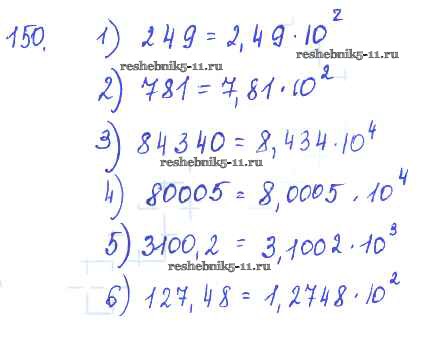 150. 1) 249 = 2,49 · 10²
reshebnik5-11.ru
reshebnik5-11.ru
2) 781 = 7,81 · 10²
3) 84340 = 8,434 · 10⁴
reshebnik5-11.ru
4) 80005 = 8,0005 · 10⁴
5) 3100,2 = 3,1002 · 10³
reshebnik5-11.ru
6) 127,48 = 1,2748 · 10²